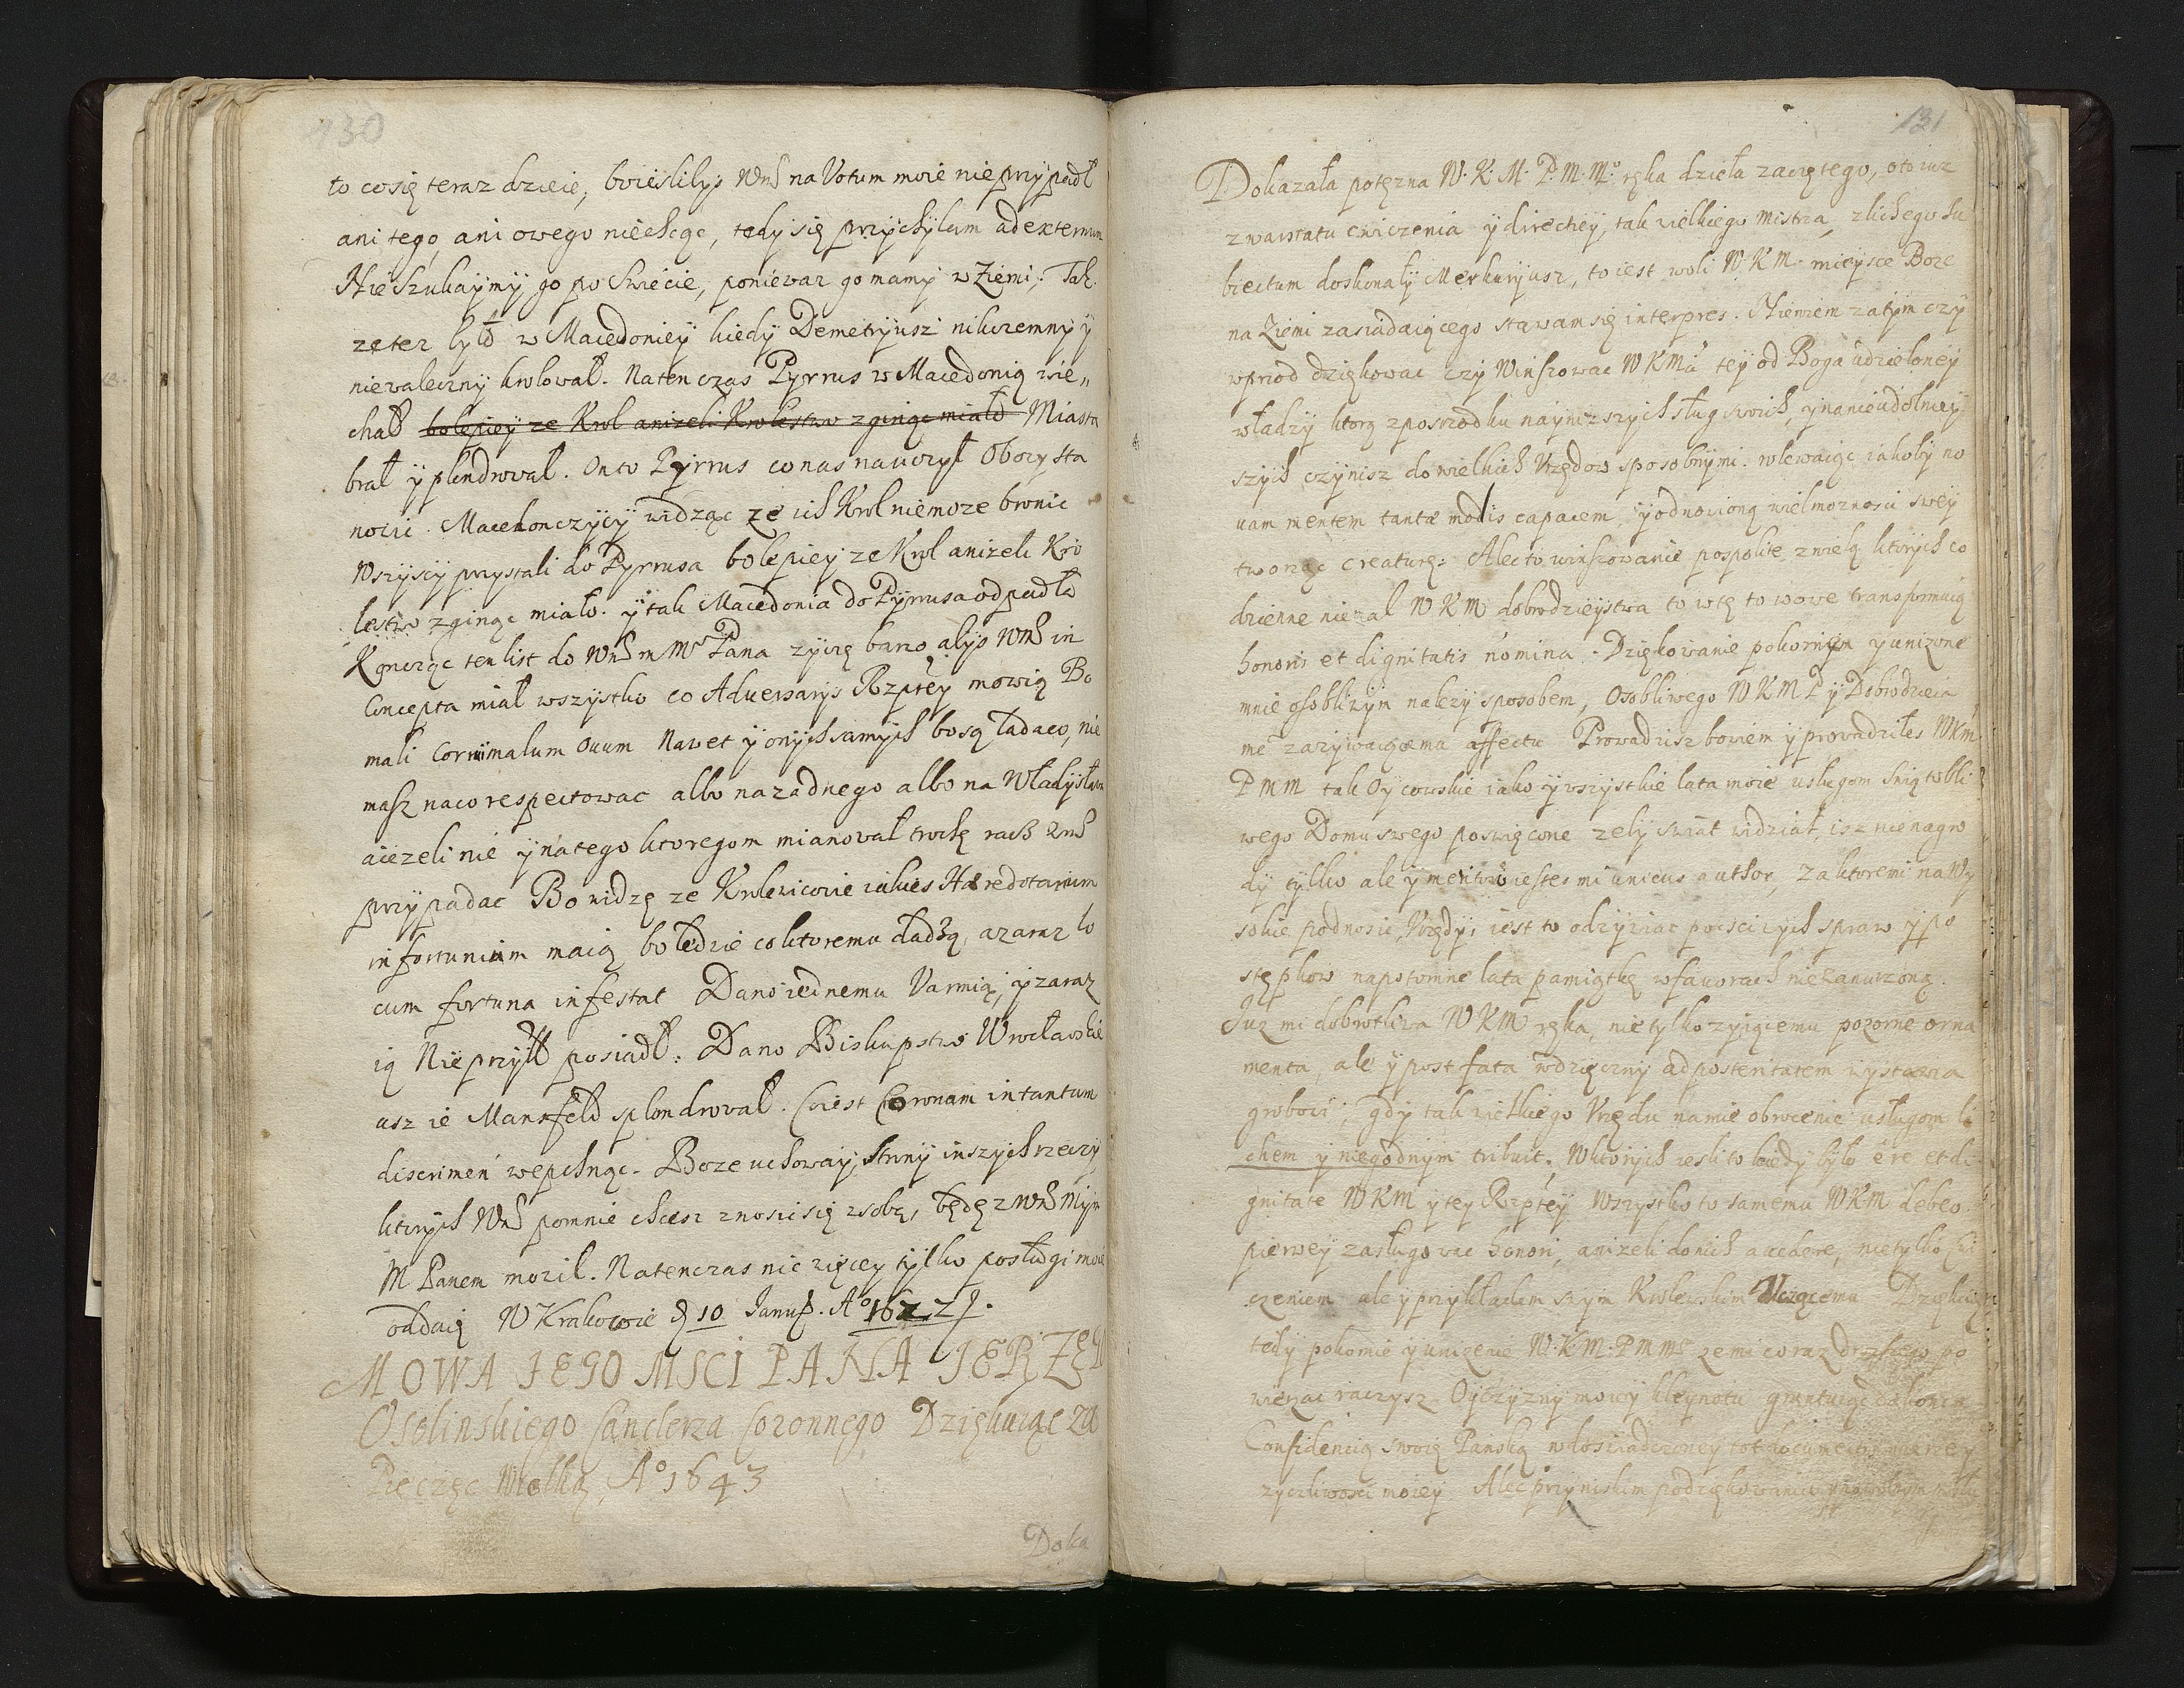 130
to cosię teraz dzieie, boieslibys Wmś na Votum moie nie przypadł
ani tego ani owego niechcąc, tedy się przychylam ad externum
Nie Szukaymy go po Swiecie, poniewaz go mamy w Ziemi. Tak
zetez było w Macedoniey kiedy Demetryusz nikczemny y
niewaleczny krolował. Natenczas Pyrrus w Macedonią wie„
chał bolepiey ze Krol anizeli Krolestwo zginąc miało Miasta
brał y plendrował. Onto Pyrrus co nas nauczył Obozy sta
nowic. Macedonczycy widząc ze ich Krol niemoze bronic
Wszyscy przystali do Pyrrusa bolepiey ze Krol anizeli Kro
lestwo zginąc miało. y tak Macedonia do Pyrrusa odpadła
Koncząc ten list do Wmś m Mo Pana zyczę barzo abys Wmś in
Concepta miał wszystko co Adversarys Rzptey mowią Bo
mali Corvi malum Ovum Nawet y onych samych bosą ladaco, nie
masz naco respectowac albo na zadnego albo na Władysława
aiezeli nie y na tego ktoregom mianował trochę racz Wmś
przypadac Bo widzę ze Krolewicowie iakies Hæreditarium
infortunium maią bo będzie co ktoremu dadzą, a zaraz lo
cum fortuna infestat Dano iednemu Varmią, y zaraz
ią Nieprzyl posiadł: Dano Biskupstwo Wrocławskie
asz ie Mansfeld splondrował. Coiest Coronam in tantum
discrimen wepchnąc. Boze uchoway, Strony inszych rzeczy
ktorych Wmś pomnie chcesz znosic się zsobą, będę z Wmś Mym
M Panem mowił. Natenczas nic więcey tylko posługi moie
oddaię W Krakowie d 10 Januar. Ao 1622.
MOWA IEGO MSCI PANA IERZEGO
Osolinskiego Canclerza Coronnego Dziękuiąc za
Pieczęc Wielką, Ao 1643
Doka
131
Dokazała potęzna W. K. M. P. M. Mo ręka dzieła zaczętego, oto iuz
zwarstatu cwiczenia y direckey, tak wielkiego Mistrza, zlichego Su
biectum doskonały Merkuryusz, to iest woli W. K. M. mieysce Boze
na Ziemi zasiadaiącego stawam się interpres. Niewiem zatym czy
wprzod dziękowac czy Winszowac W K M tey od Boga udzieloney
władzy ktorą zposrzodku naynizszych sług swoich, y nanieudolniey
szych czynisz do wielkich Urzędow sposobnymi. wlewaiąc iakoby no
vam mentem tantæ molis capacem, y odnowioną wielmoznosci swey
tworząc creaturę. Alec to winszowanie pospolite z wielą ktorych co
dzienne niemal W K M dobrodzieystwa to w te to w owe transformuią
honoris et dignitatis nomina. Dziękowanie pokornym y unizone
mnie osobliwym nalezy sposobem, Osobliwego W K M P y Dobrodzieia
me zazywaiącemu affectu Prowadzisz bowiem y prowadziłes WKm
P m m tak Oycowskie iako y wszystkie lata moie usługom Swiątobli
wego Domu swego poswięcone zeby swiat widział, isz nie nagro
dy tylko ale y meritow iestes mi unicus author, za ktoremi na Wy
sokie podnosic Urzędy, iest to odzywiac poczciwych spraw y po
stępkow na potomne lata pamiątkę w favorach niezanurzoną.
Juz mi dobrotliwa W K M ręka, nie tylko zyiącemu pozorne orna
menta, ale y post fata wdzięczny ad posteritatem wystawia
grobowiec, gdy tak wielkiego Urzędu na mie obrocenie usługom li
chem y niegodnym tribuit. Wktorych iesli to kiedy było e re et di
gnitate W K M y tey Rzptey Wszystko to samemu W K M debeo
pierwey zasługowac honori, anizeli do nich accedere, nie tylko cwi
czeniem ale y przykładem swym Krolewskim Uczącemu Dziękuię
tedy pokornie y unizenie W. K. M. P m m ze mi coraz drozszego po
wierzac raczysz Oyczyzny mowy kleynotu gruntuiąc
Confidencią swoię Panską w doswiadczoney tot documentis wierzey
zyczliwosci moiey Alec przyniskim podziękowaniu